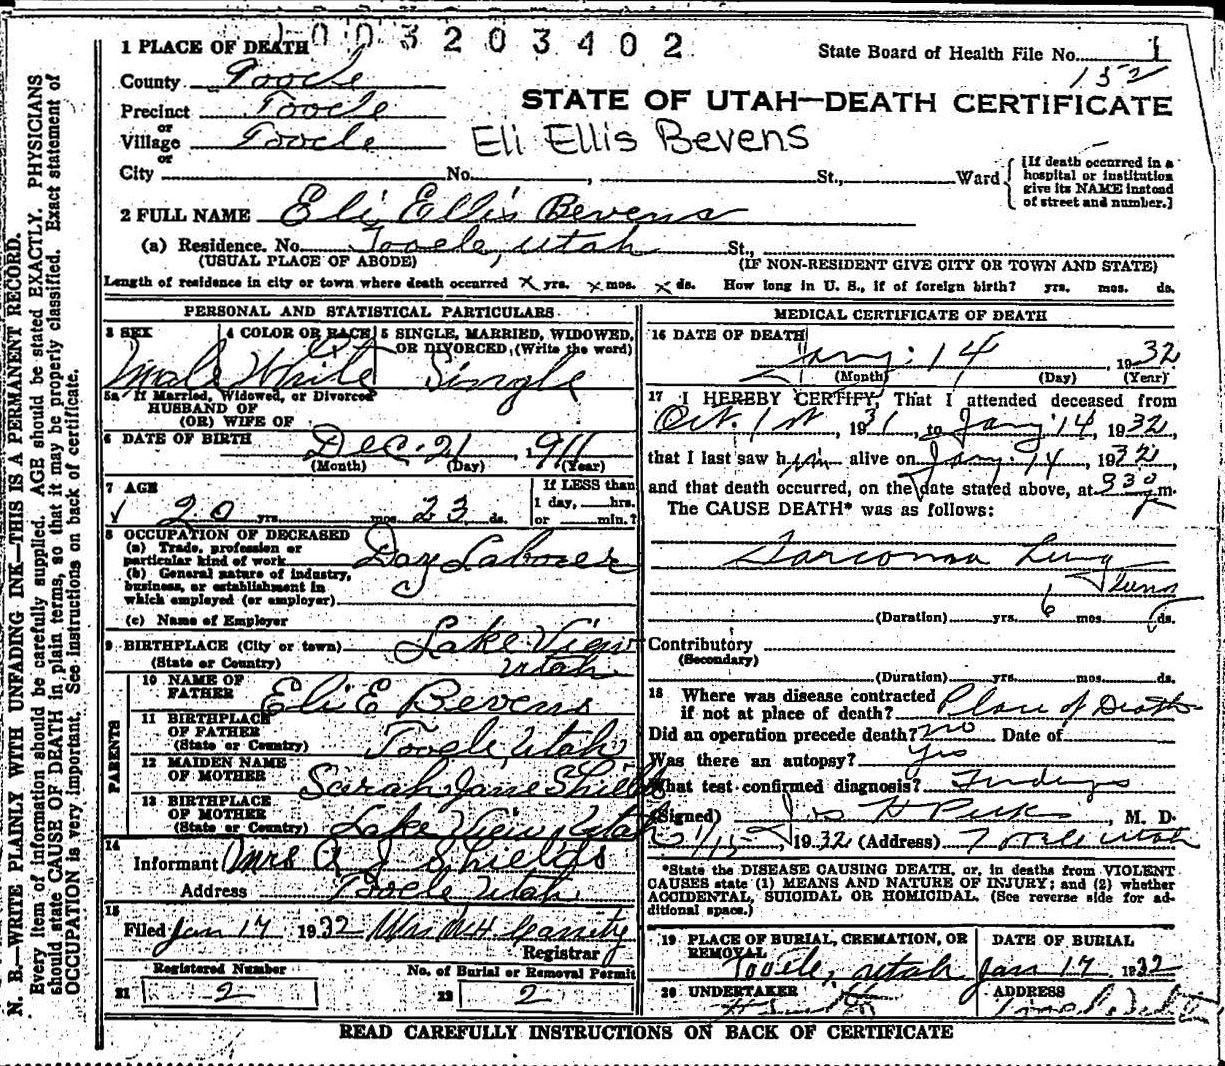 1003203402
1 PLACE OF DEATH
State Board of Health File No. 1
152
County Tooele
Precinct Tooele
or
Village Tooele
or
City No. , St., Ward
STATE OF UTAH—DEATH CERTIFICATE
Eli Ellis Bevens
[If death occurred in a
hospital or institution
give its NAME instead
of street and number.]
2 FULL NAME Eli Ellis Bevens
(a) Residence. No. Tooele, Utah St.,
(USUAL PLACE OF ABODE) (IF NON-RESIDENT GIVE CITY OR TOWN AND STATE)
Length of residence in city or town where death occurred x yrs. x mos. x ds. How long in U. S., if of foreign birth? yrs. mos. ds.
PERSONAL AND STATISTICAL PARTICULARS
3 SEX 4 COLOR OR RACE 5 SINGLE, MARRIED, WIDOWED,
OR DIVORCED, (Write the word)
Male White Single
5a If Married, Widowed, or Divorced
HUSBAND OF
(OR) WIFE OF
6 DATE OF BIRTH Dec. 21, 1911
(Month) (Day) (Year)
7 AGE If LESS than
1 day, hrs.
20 yrs. mos. 23 ds. or min.?
8 OCCUPATION OF DECEASED
(a) Trade, profession or
particular kind of work Day Laborer
(b) General nature of industry,
business, or establishment in
which employed (or employer)
(c) Name of Employer
9 BIRTHPLACE (City or town) Lake View
(State or Country) Utah
PARENTS
10 NAME OF
FATHER Eli E Bevens
11 BIRTHPLACE
OF FATHER
(State or Country) Tooele, Utah
12 MAIDEN NAME
OF MOTHER Sarah Jane Shields
13 BIRTHPLACE
OF MOTHER
(State or Country) Lake View, Utah
14
Informant Mrs A J Shields
Address Tooele Utah
15
Filed Jan 17 1932
Registrar
Registered Number No. of Burial or Removal Permit
21 2 22 2
MEDICAL CERTIFICATE OF DEATH
16 DATE OF DEATH
Jany. 14, 1932
(Month) (Day) (Year)
17 I HEREBY CERTIFY, That I attended deceased from
Oct. 1st, 1931, to Jany 14, 1932,
that I last saw him alive on Jany. 14, 1932,
and that death occurred, on the date stated above, at 930 m.
The CAUSE DEATH* was as follows:
Sarcoma Lung
(Duration) yrs. 6 mos. ds.
Contributory
(Secondary)
(Duration) yrs. mos. ds.
18 Where was disease contracted
if not at place of death? Place of Death
Did an operation precede death? no Date of
Was there an autopsy? Yes
What test confirmed diagnosis? Findings
(Signed) Jos H Peck, M. D.
1/15, 1932 (Address) Tooele Utah
*State the DISEASE CAUSING DEATH, or, in deaths from VIOLENT
CAUSES state (1) MEANS AND NATURE OF INJURY; and (2) whether
ACCIDENTAL, SUICIDAL OR HOMICIDAL. (See reverse side for ad-
ditional space.)
19 PLACE OF BURIAL, CREMATION, OR
REMOVAL DATE OF BURIAL
Tooele, Utah Jan 17 1932
20 UNDERTAKER ADDRESS
READ CAREFULLY INSTRUCTIONS ON BACK OF CERTIFICATE
N. B.—WRITE PLAINLY WITH UNFADING INK—THIS IS A PERMANENT RECORD.
Every item of information should be carefully supplied. AGE should be stated EXACTLY. PHYSICIANS
should state CAUSE OF DEATH in plain terms, so that it may be properly classified. Exact statement of
OCCUPATION is very important. See instructions on back of certificate.